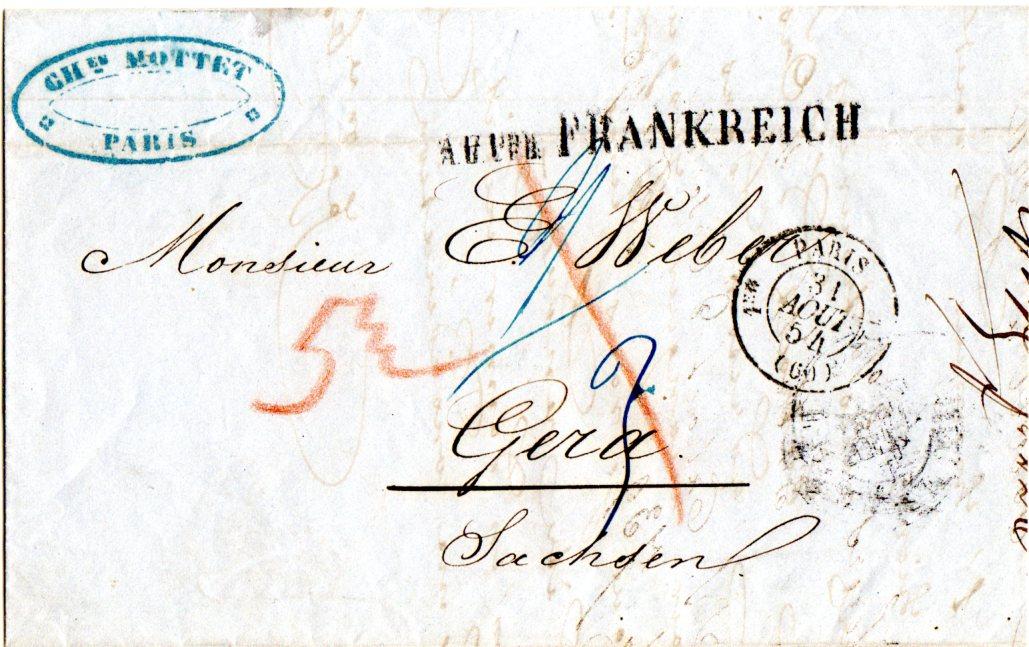 CHles MOTTET
PARIS
AUS PER FRANKREICH
Monsieur E Weber
PARIS
1ere
31
AOUT
54
(60)
5
3
Gera.
Sachsen